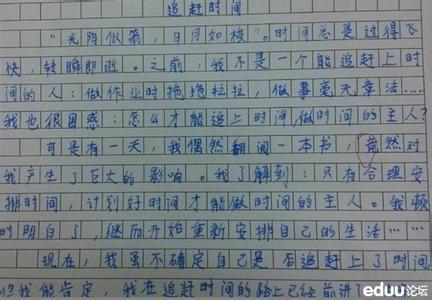 追赶时间
"光阴似箭,日月如梭。"时间总是过得飞
快,转瞬即逝。之前,我不是一个能追赶上时
间的人:做作业时拖拖拉拉,做事毫无章法……
我也很困惑:怎么才能追上时间,做时间的主人?
可是有一天,我偶然翻阅一本书,竟然对
我产生了巨大的影响。我了解到:只有合理安
排时间,计划好时间才能做时间的主人。我顿
时明白了,继而开始重新安排自己的生活……
现在,我虽不确定自己是否追赶上了时间,
但我能肯定,我在追赶时间的路上已经前进了
eduu论坛